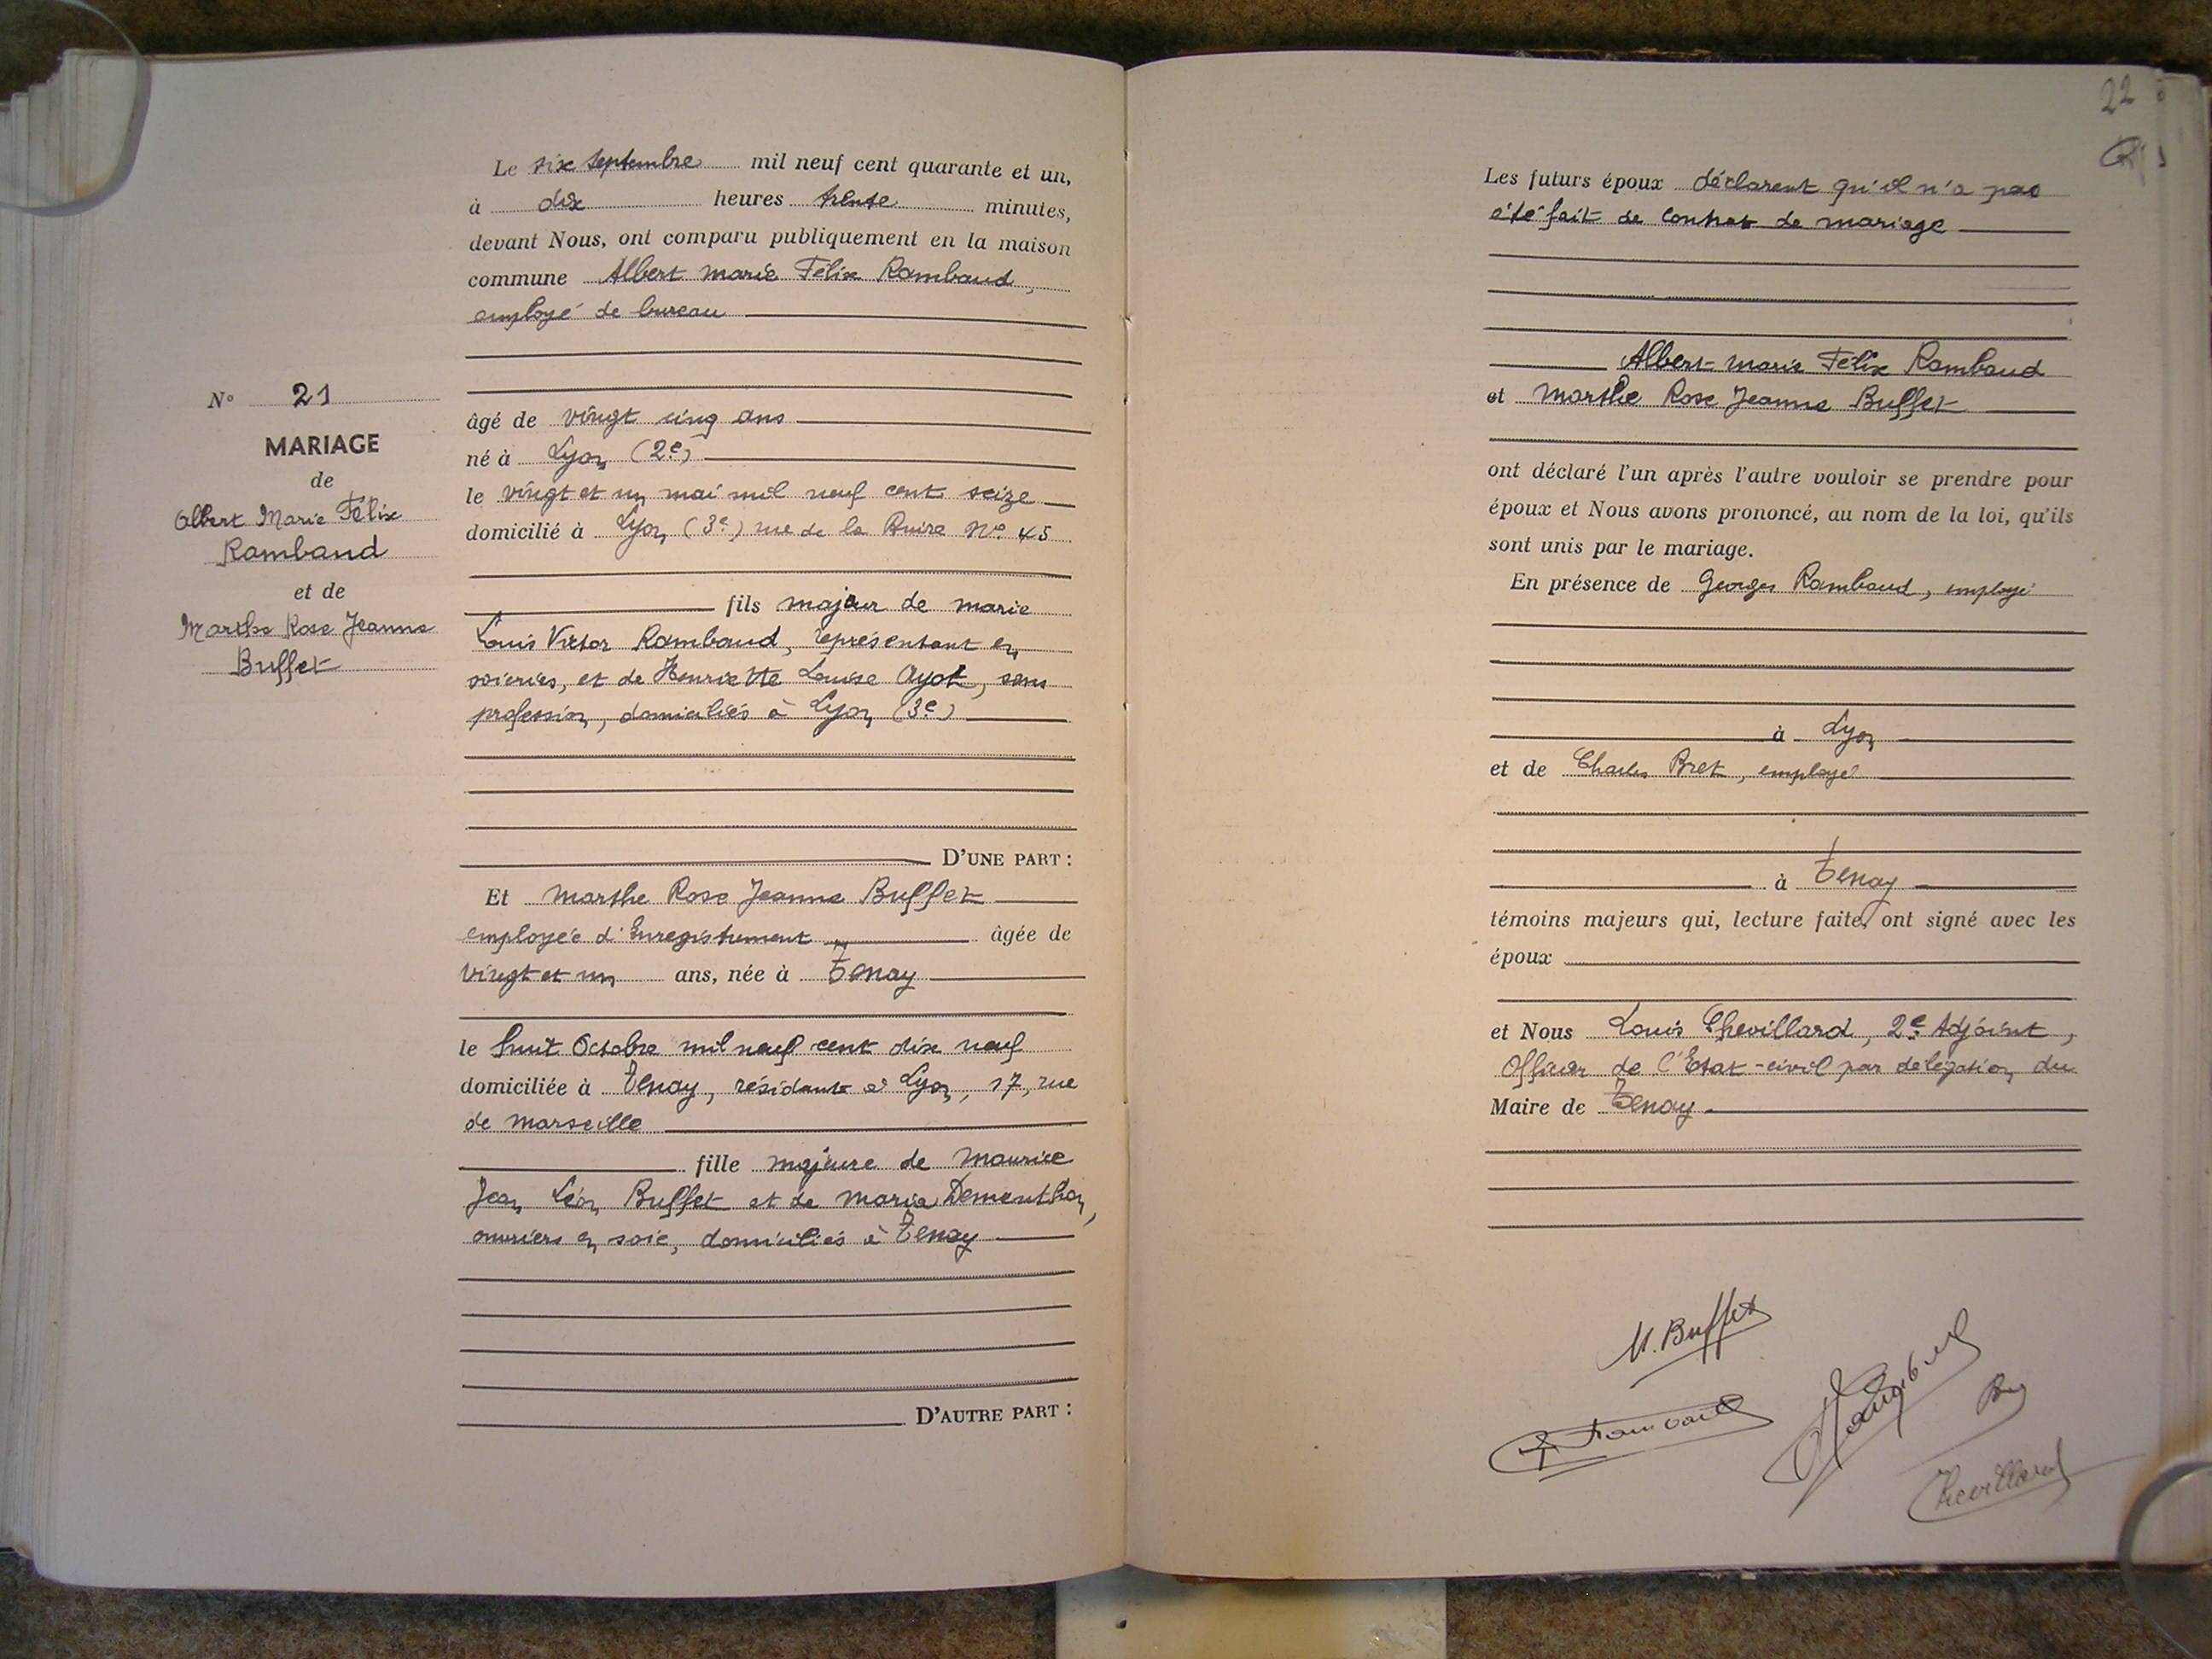 Le six septembre mil neuf cent quarante et un,
à dix heures trente minutes,
devant Nous, ont comparu publiquement en la maison
commune Albert Marie Félix Rambaud,
employé de bureau
N° 21
MARIAGE
de
Albert Marie Félix
Rambaud
et de
Marthe Rose Jeanne
Buffet
âgé de vingt cinq ans
né à Lyon (2e)
le vingt et un mai mil neuf cent seize
domicilié à Lyon (3e) rue de la Buire No 45
fils majeur de marie
Louis Victor Rambaud, représentant en
soieries, et de Henriette Louise Ayot, sans
profession, domiciliés à Lyon (3e)
D'UNE PART :
Et Marthe Rose Jeanne Buffet
employée d'Enregistrement âgée de
vingt et un ans, née à Tenay
le huit Octobre mil neuf cent dix neuf
domiciliée à Tenay, résidante à Lyon, 17, rue
de Marseille
fille majeure de Maurice
Jean Léon Buffet et de Maria Dementhon,
ouvriers en soie, domiciliés à Tenay
D'AUTRE PART :
22
Les futurs époux déclarent qu'il n'a pas
été fait de contrat de mariage
Albert Marie Félix Rambaud
et Marthe Rose Jeanne Buffet
ont déclaré l'un après l'autre vouloir se prendre pour
époux et Nous avons prononcé, au nom de la loi, qu'ils
sont unis par le mariage.
En présence de Georges Rambaud, employé
à Lyon
et de Charles Bret, employé
à Tenay
témoins majeurs qui, lecture faite, ont signé avec les
époux
et Nous Louis Chevillard, 2e Adjoint,
Officier de l'Etat-civil par délégation du
Maire de Tenay.
M. Buffet
Chevillard